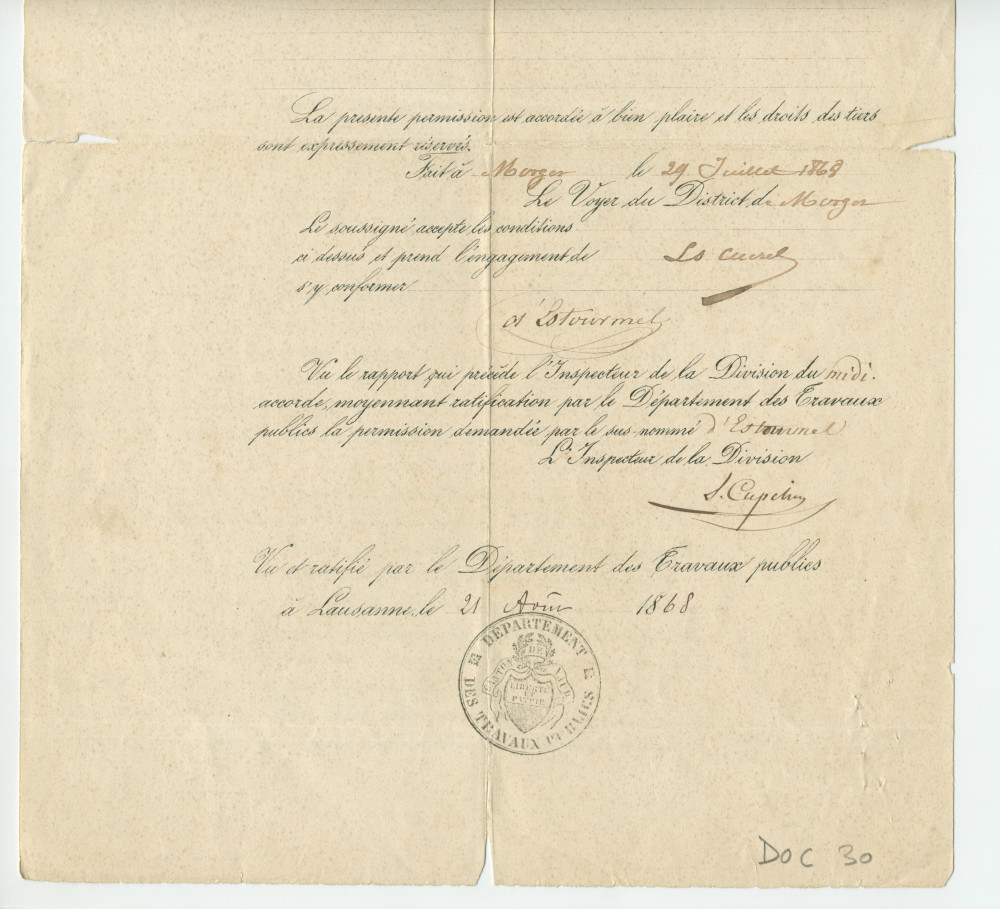 La presente permission est accordée à bien plaire et les droits des tiers
sont expressement réservés.
Fait à Morges le 29 Juillet 1868
Le Voyer du District de Morges
Le soussigné accepte les conditions
ci dessus et prend l'engagement de
s'y conformer
Ls
d'Estourmel
Vu le rapport qui précède l'Inspecteur de la Division du midi.
accorde, moyennant ratification par le Département des Travaux
publics la permission demandée par le sus-nommé d'Estourmel
L'Inspecteur de la Division
Vu et ratifié par le Département des Travaux publics
à Lausanne, le 21 Août 1868
DÉPARTEMENT
DES TRAVAUX PUBLICS
CANTON DE VAUD
LIBERTÉ
ET
PATRIE
DOC 30